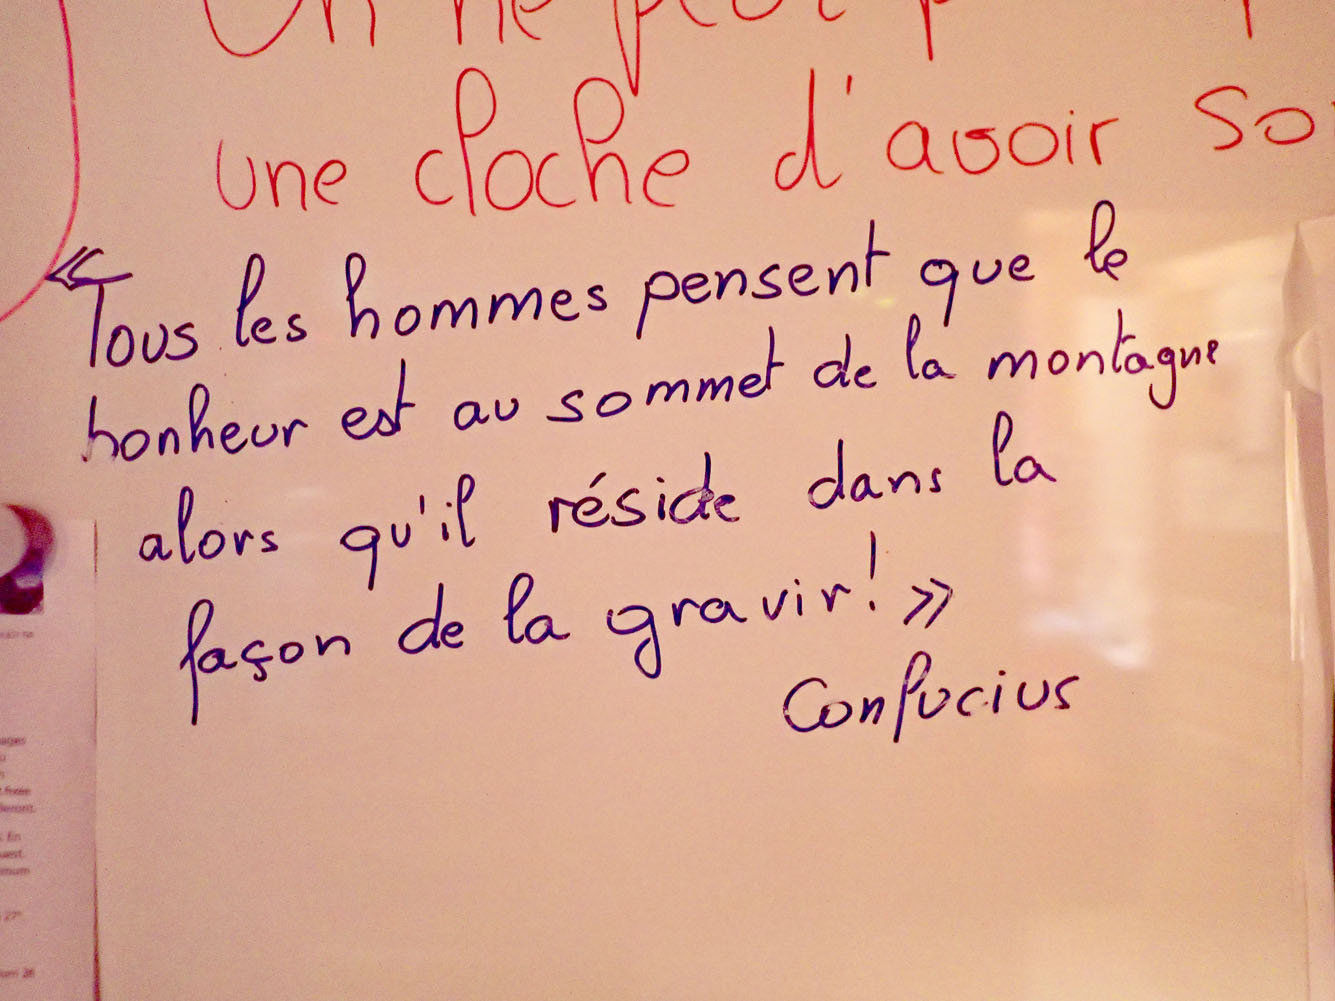 une cloche d'avoir so
« Tous les hommes pensent que le
bonheur est au sommet de la montagne
alors qu'il réside dans la
façon de la gravir! »
Confucius